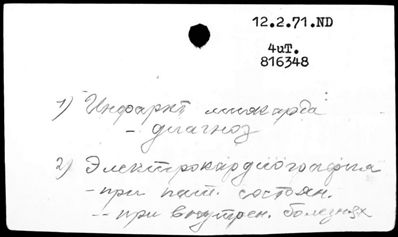 12.2.71.ND
4иT.
816348
1) Инфаркт миокарда
- диагноз
2) Электрокардиография
- при пат. состоян.
- при внутрен. болезнях